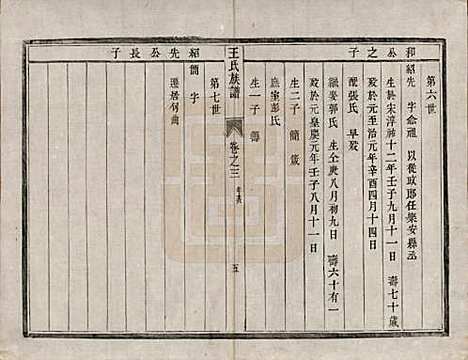 第六世
和公之子
紹先 字念祖 以從政郎任樂安縣丞
生於宋淳祐十二年壬子九月十一日 壽七十歲
歿於元至治元年辛酉四月十四日
配張氏 早歿
繼娶郭氏 生仝庚八月初九日 壽六十有一
歿於元皇慶元年壬子八月十一日
生二子 簡 箴
庶室彭氏
生一子 籌
王氏族譜
卷之三
五
第七世
紹先公長子
簡 字
遷居句曲